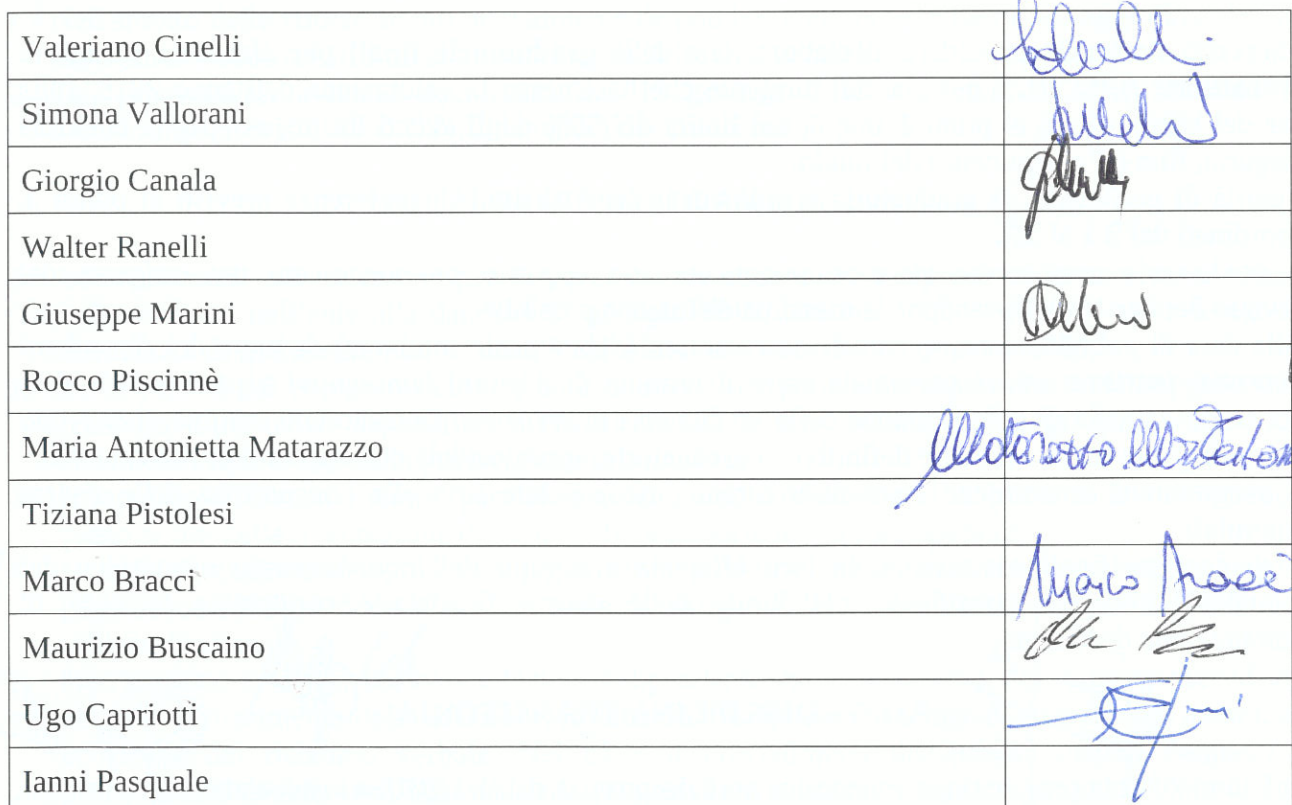 Valeriano Cinelli
Simona Vallorani
Giorgio Canala
Walter Ranelli
Giuseppe Marini
Rocco Piscinnè
Maria Antonietta Matarazzo
Matarazzo
Tiziana Pistolesi
Marco Bracci
Marco Bracci
Maurizio Buscaino
Ugo Capriotti
Ianni Pasquale